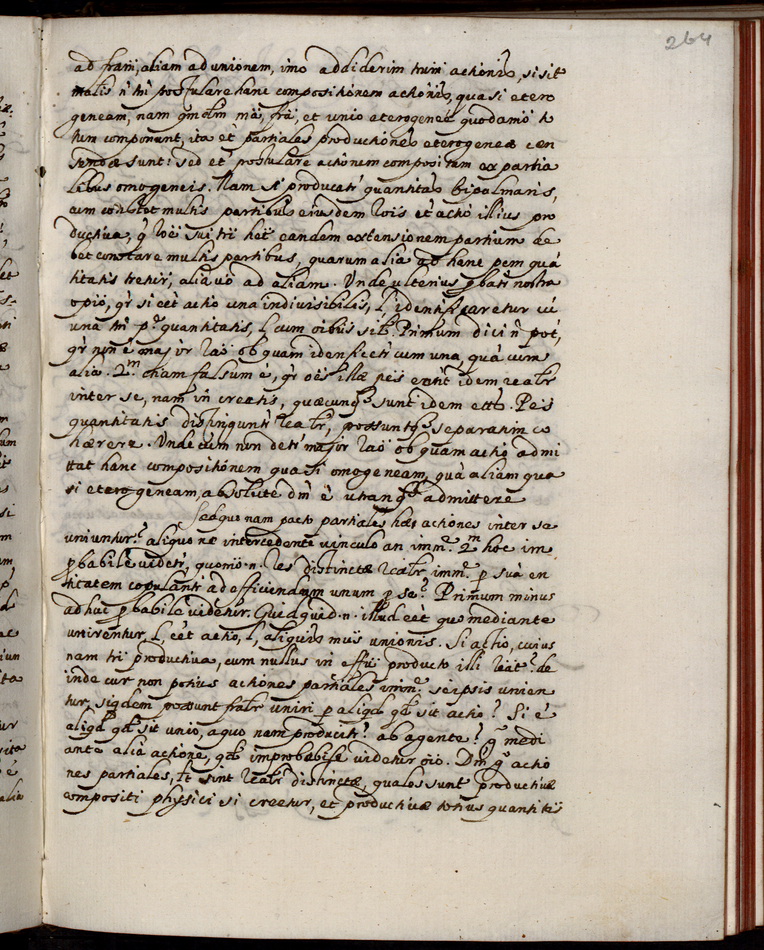 264
ad fram, aliam ad unionem, imo addiderim trium actionis, si sit
malis n mi postulare hanc compositionem actionis, quasi etero
geneam, nam qmolm ma, fra, et unio eterogenea quodamo to
tum componunt, ita et partiales productiones eterogeneæ cen
sendæ sunt: sed et postulare actionem compositam ex partia
libus omogeneis. Nam si producati quantitas bipalmaris,
cum constet multis partibus eiusdem rois et actio illius pro
ductiva, q roe sui tri het eandem extensionem partium de
bet constare multis partibus, quarum alia ad hanc pem qua
titatis tretir, alia vo ad aliam. Unde ulterius pbatr nostra
opio, qr si eet actio una indivisibilis, l, identificaretur cu
una tri p.e quantitatis, l, cum oibus sil. Primum dici n pot,
qr non e major rao ob quam idenficetr cum una, qua cum
alia. 2.m etiam falsum e, qr oes illæ pes erunt idem realr
inter se, nam in creatis, quæcunq sunt idem
quantitatis distinguntr realr, possuntq separatim co
hærere. Unde cum non detr major rao ob quam actio admi
ttat hanc compositionem quasi omogeneam, qua aliam qua
si eterogeneam, absolute dm e utranq admittere
Sed quonam pacto partiales hæ actiones inter se
uniuntur? aliquo ne intercedente vinculo an imm.e 2.m hoc im
pbabile videtr, quomo n. res distinctæ realr imm.e p sua en
titatem copulantr ad efficiendum unum p se? Primum minus
adhuc pbabile videtur. Quidquid n. illud eet quo mediante
unirentur, l, eet actio, l, aliquis mus unionis. Si actio, cuius
nam tri productiva, cum nullus in effu producto illi reat? de
inde cur non potius actiones partiales imm.e seipsis unien
tur, siqdem possunt fratr uniri p aliqd qd sit actio? Si e
aliqd qd sit unio, a quo nam producitr? ab agente? q medi
ante alia actione, qd improbabile videtur oio. Dm q actio
nes partiales, et sint realr distinctæ, quales sunt productivæ
compositi physici si creetur, et productivæ totius quantitis